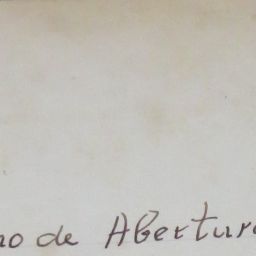 no de Abertura